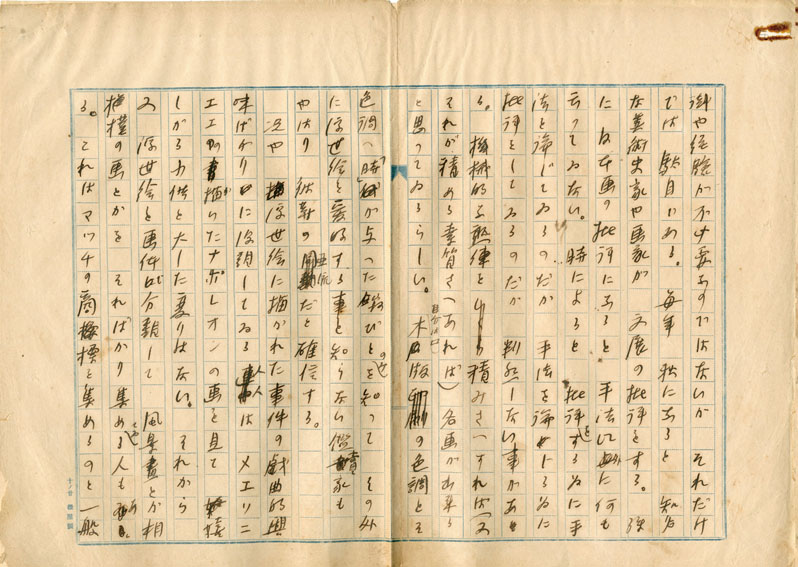 識や経験が不必要なのではないが それだけ
では 駄目である。 毎年 秋になると 知名
な美術史家や画家が 文展の批評をする。 殊
に 日本画の批評になると 手法以外に何も
云ってゐない。時によると 批評をするために手
法を論じてゐるのだか 手法を論ずるために
批評をしてゐるのだか 判然しない事があ
る。 機械的な熟練を 積みさへすれば(又
それが積める素質さへあれば) 名画が出来る
と思ってゐるらしい。 木版の色調とそ
色調へ時代が与った錆びとを知って その外
に浮世絵を愛する事を知らない 蒐家も
やはり 彼等の亜流だと確信する。
況や 浮世絵に描かれた事件の戯曲的興
味ばかりに没頭してゐる 人人は メエリニ
エエの描いたナポレオンの画を見て 嬉
しがる子供と大した変りはない。 それから
又 浮世絵を画体で分類して 風景畫とか相
撲の画とかを そればかり集める人もある。
る。 これはマツチの商標を集めるのと一般